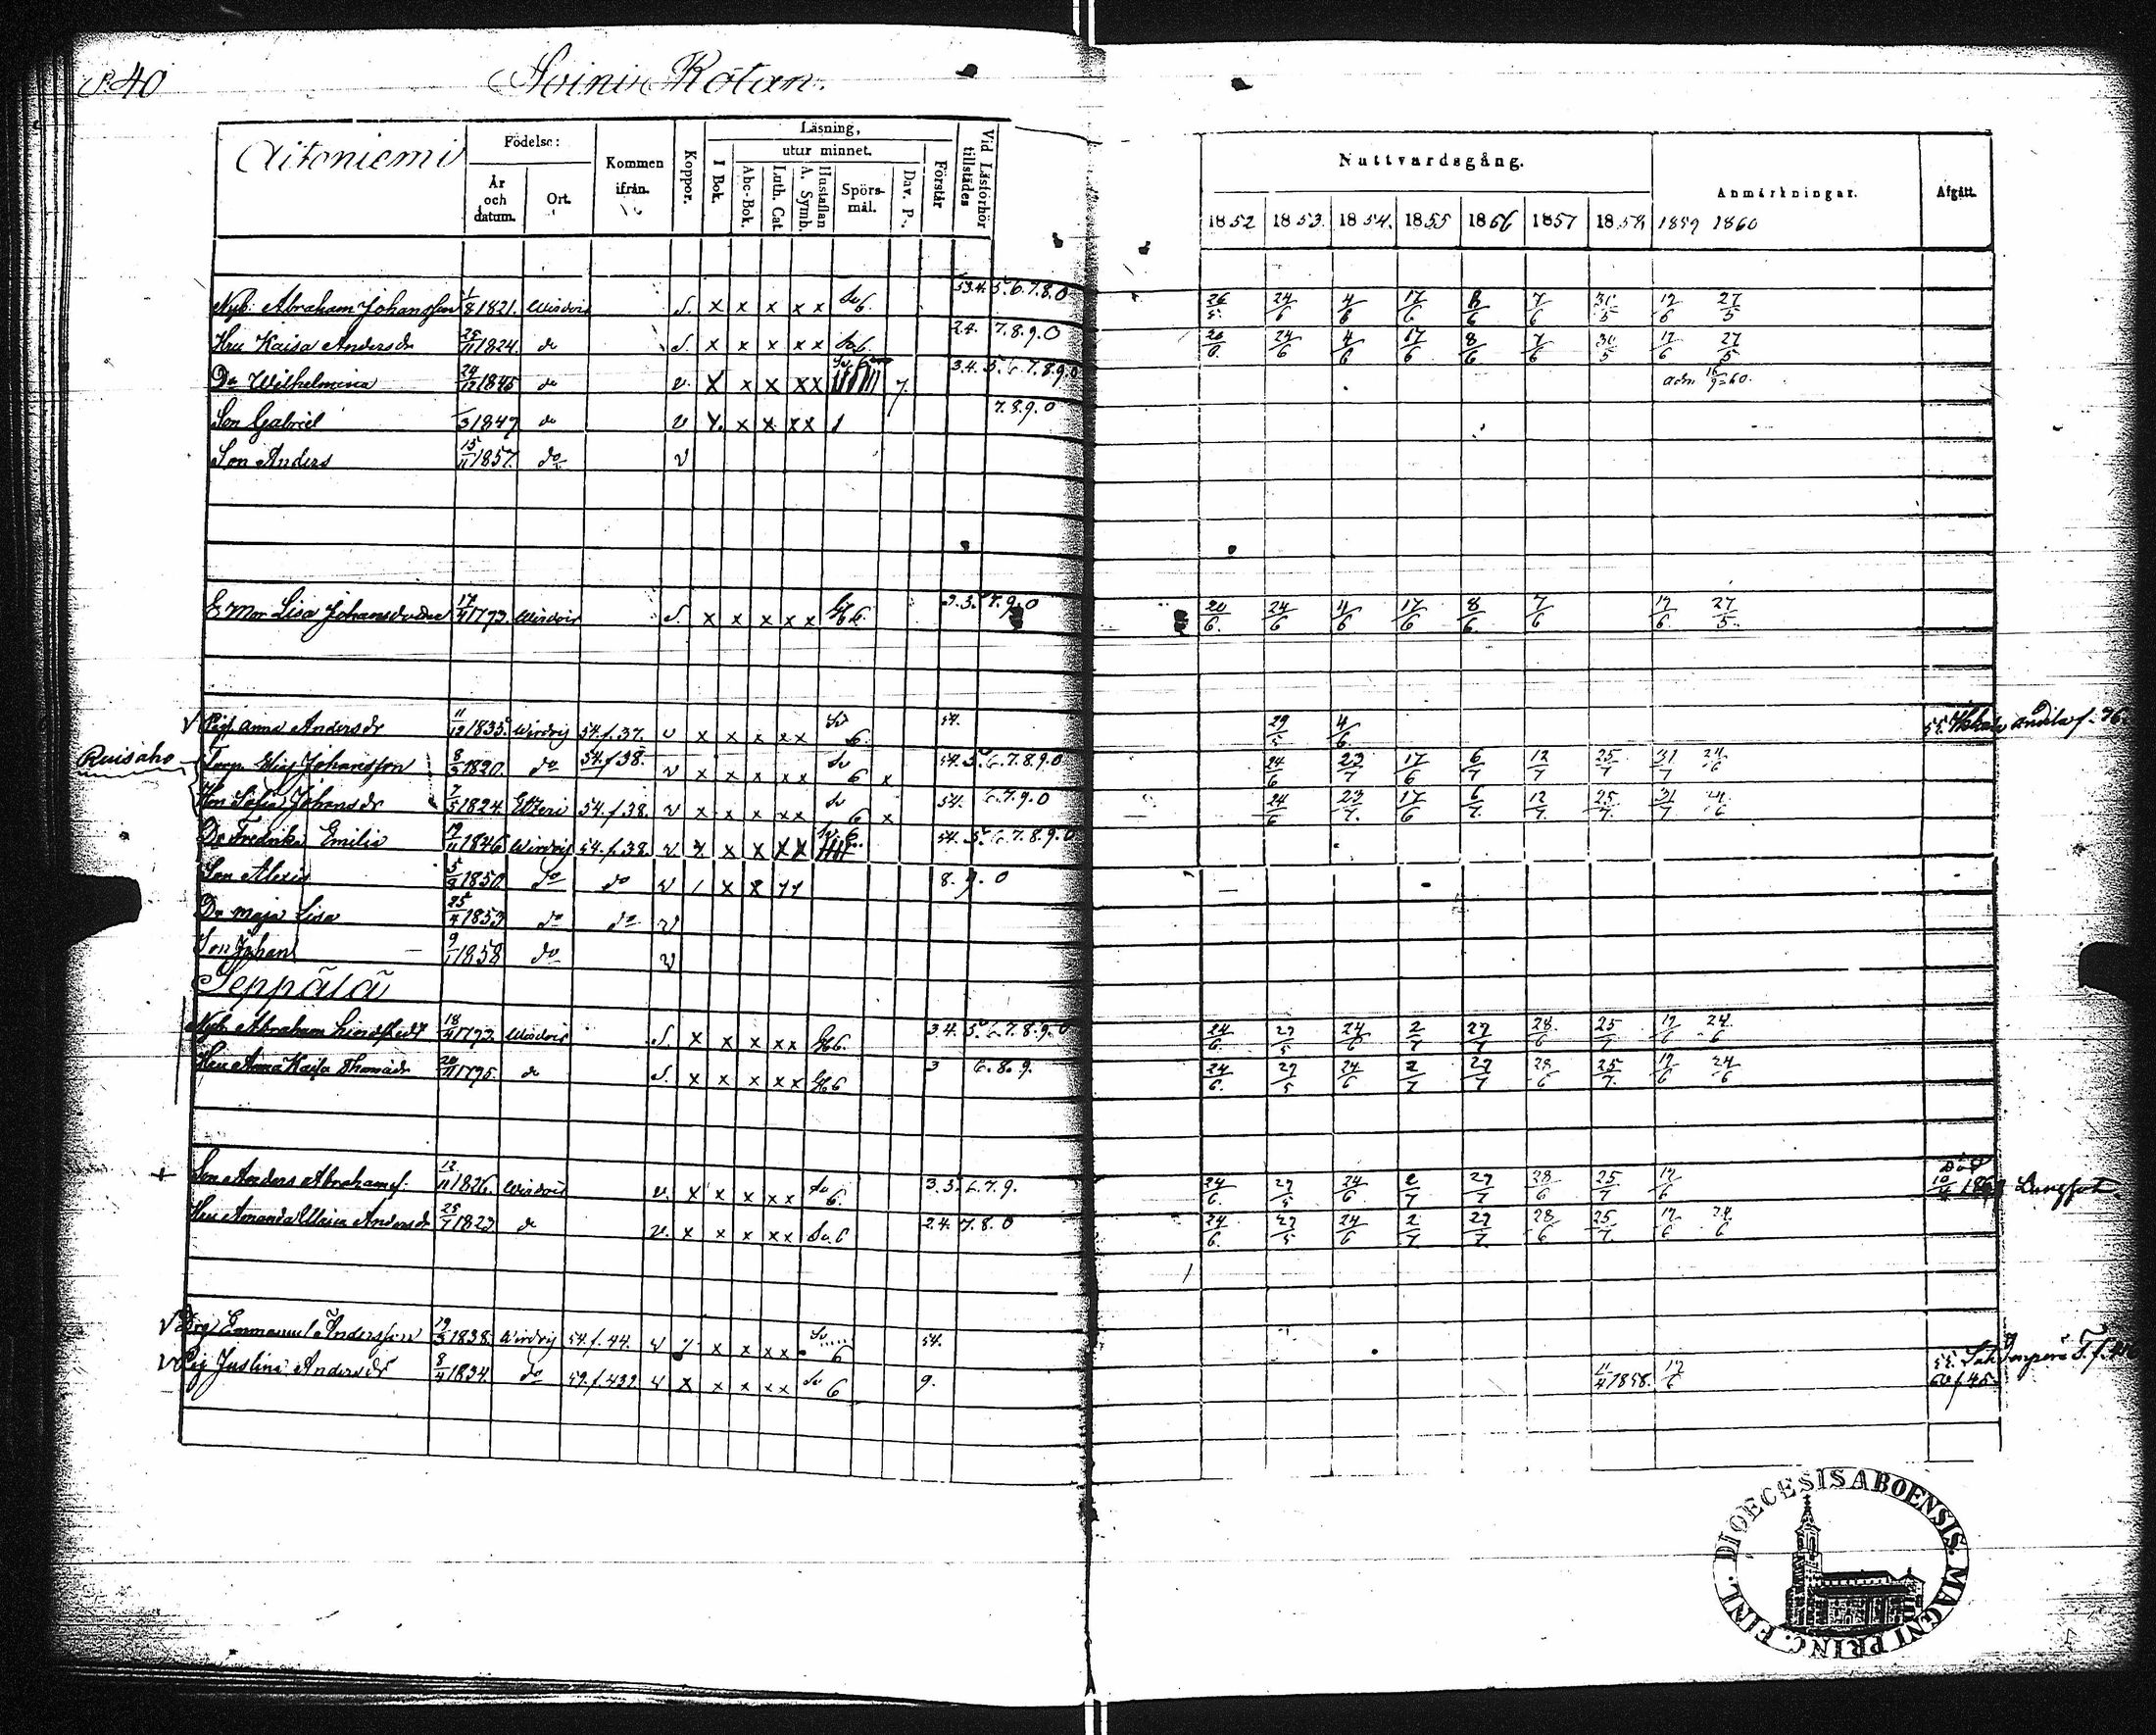 P. 40 Soini Rotan.
Aitoniemi Födelse: År och datum. Ort. Kommen ifrån. Koppor. Läsning, I Bok. utur minnet. Abc-Bok. Luth. Cat. A. Symb. Hustaflan Spörsmål. Dav. P. Förstår Vid Läsförhör tillstädes Nattvardsgång. Anmärkningar. Afgått.
1852 1853. 1854. 1855 1856 1857 1858 1859 1860
Nyb. Abraham Johansson 1/8 1821. Wirdois S. x x x x x Sv 6. 53.4.5.6.7.8.0 26/5 24/6 4/6 17/6 8/6 7/6 31/5 12/6 27/5
Hru Kaisa Andersdr 25/11 1824. do S. x x x x x Sv 6. 2.4. 7.8.9.0 20/6. 24/6 4/6 17/6 8/6 7/6 30/5 12/6 27/5
Dr Wilhelmina 24/12 1845 do v. x x x x x 7. 3.4.5.6.7.8.9.0 adm 16/9 60.
Son Gabriel /3 1847 do v x. x x x x 7.8.9.0
Son Anders 15/11 1857. do v
E Mor Lisa Johansdr 17/4 1773. Wirdois S. x x x x x 6. 3.5.7.9.0 20/6. 24/6 4/6 17/6 8/6 7/6 12/6 27/5
V Pig. Anna Andersdr 11/12 1835. Wirdois 54. f. 37. v x x x x x Sv 6. 54. 29/5 4/6.
Ruisaho Torp. Elias Johansson 8/3 1820. do 54. f. 38. v x x x x x Sv 6 x 54.5.6.7.8.9.0 24/6 23/7 17/6 6/7 12/7 25/7 31/7 24/6
Hru Sofia Johansdr 2/5 1824. Etseri 54. f. 38. v x x x x x Sv 6 x 54. 6.7.9.0 24/6 23/7. 17/6 6/7. 12/7 25/7. 31/7
Dr Fredrika Emilia 19/11 1846 Wirdois 54. f. 38. v x x x x x Sv. 6 54.5.6.7.8.9.0
Son Alexis 5/9 1850. do do v 8.9.0
Dr Maja Lisa 25/4 1853 do do v
Son Johan 9/1 1858 do v
Seppälä
Nyb. Abraham Lindstedt 18/4 1793. Wirdois S. x x x x x 6. 3.4.5.6.7.8.9.0 24/6. 29/5 24/6 2/7 27/7 28/6 25/7 12/6 24/6
Hru Anna Kaisa Thomasdr 20/11 1795. do S. x x x x x 6 3 6.8.9. 24/6. 29/5 24/6 2/7 27/7 28/6 25/7. 12/6 24/6
+ Son Anders Abrahamss. 12/11 1826. Wirdois v. x x x x x Sv 6. 3.5.6.7.9. 24/6. 29/5 24/6. 2/7 27/7 28/6 25/7 12/6 Död 10/4
Hru Amanda Ulrica Andersdr 25/7 1823 do v. x x x x x Sv. 6 2.4. 7.8.0 24/6. 29/5 24/6 2/7 27/7. 28/6 25/7. 12/6 24/6
V Drg Emmanuel Andersson 19/3 1838. Wirdois 54. f. 44. v x x x x Sv 6 54.
V Pig Justina Andersdr 8/4 1834 do 59. f. 432. v x x x x x Sv 6 9. 11/4 1858. 12/6 60 f. 45.
DIOECESIS ABOENSIS. MAGNI PRINC. FINL.